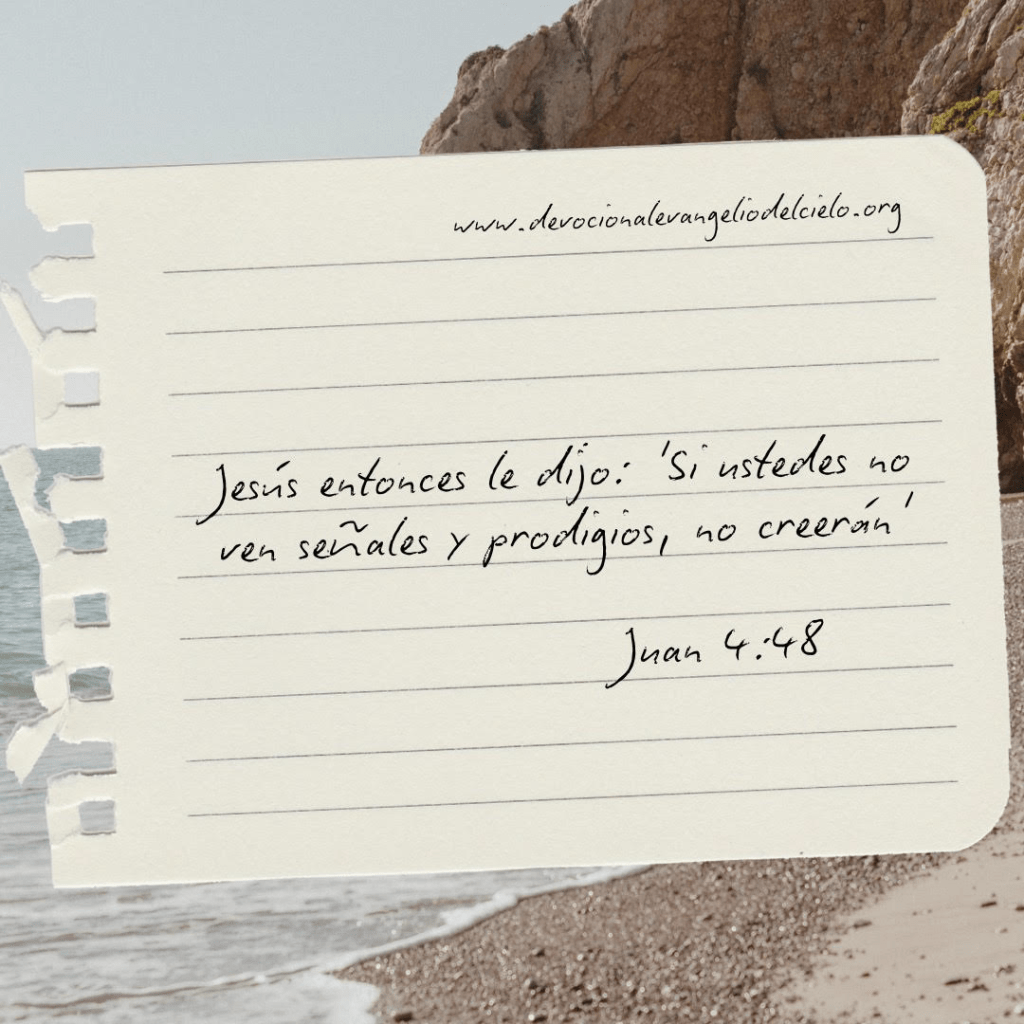 www.devocionalevangeliodelcielo.org
Jesús entonces le dijo: 'Si ustedes no
ven señales y prodigios, no creerán'
Juan 4:48